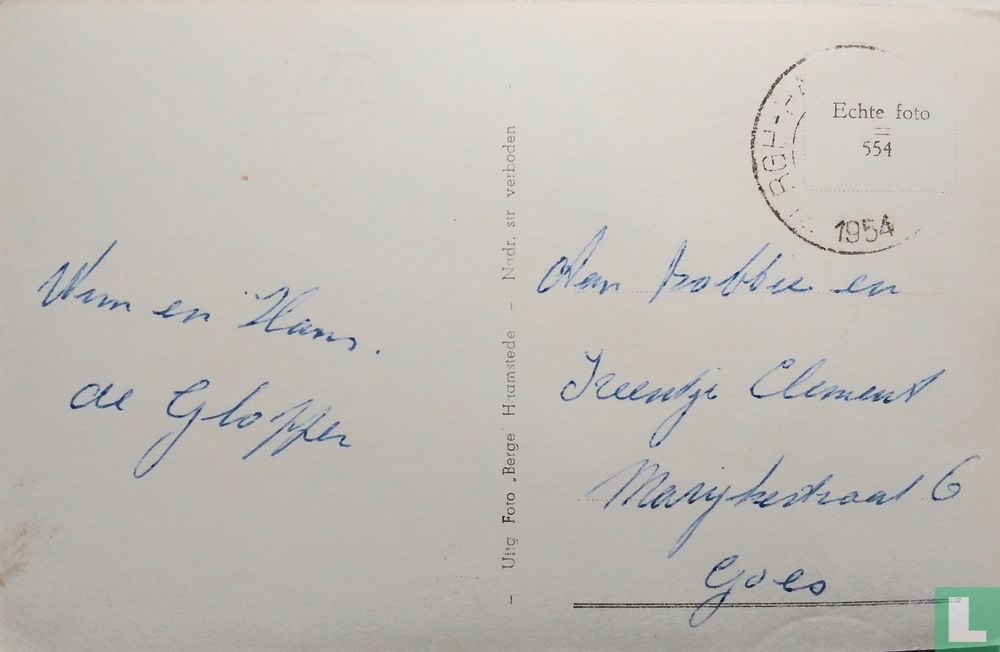 Wim en Hans.
de Glopper
- Uitg Foto „Berge" Haamstede - Nadr. str. verboden
Echte foto
554
RGH-HA
1954
Aan Robbie en
Treentje Clement
Marijkestraat 6
Goes
L